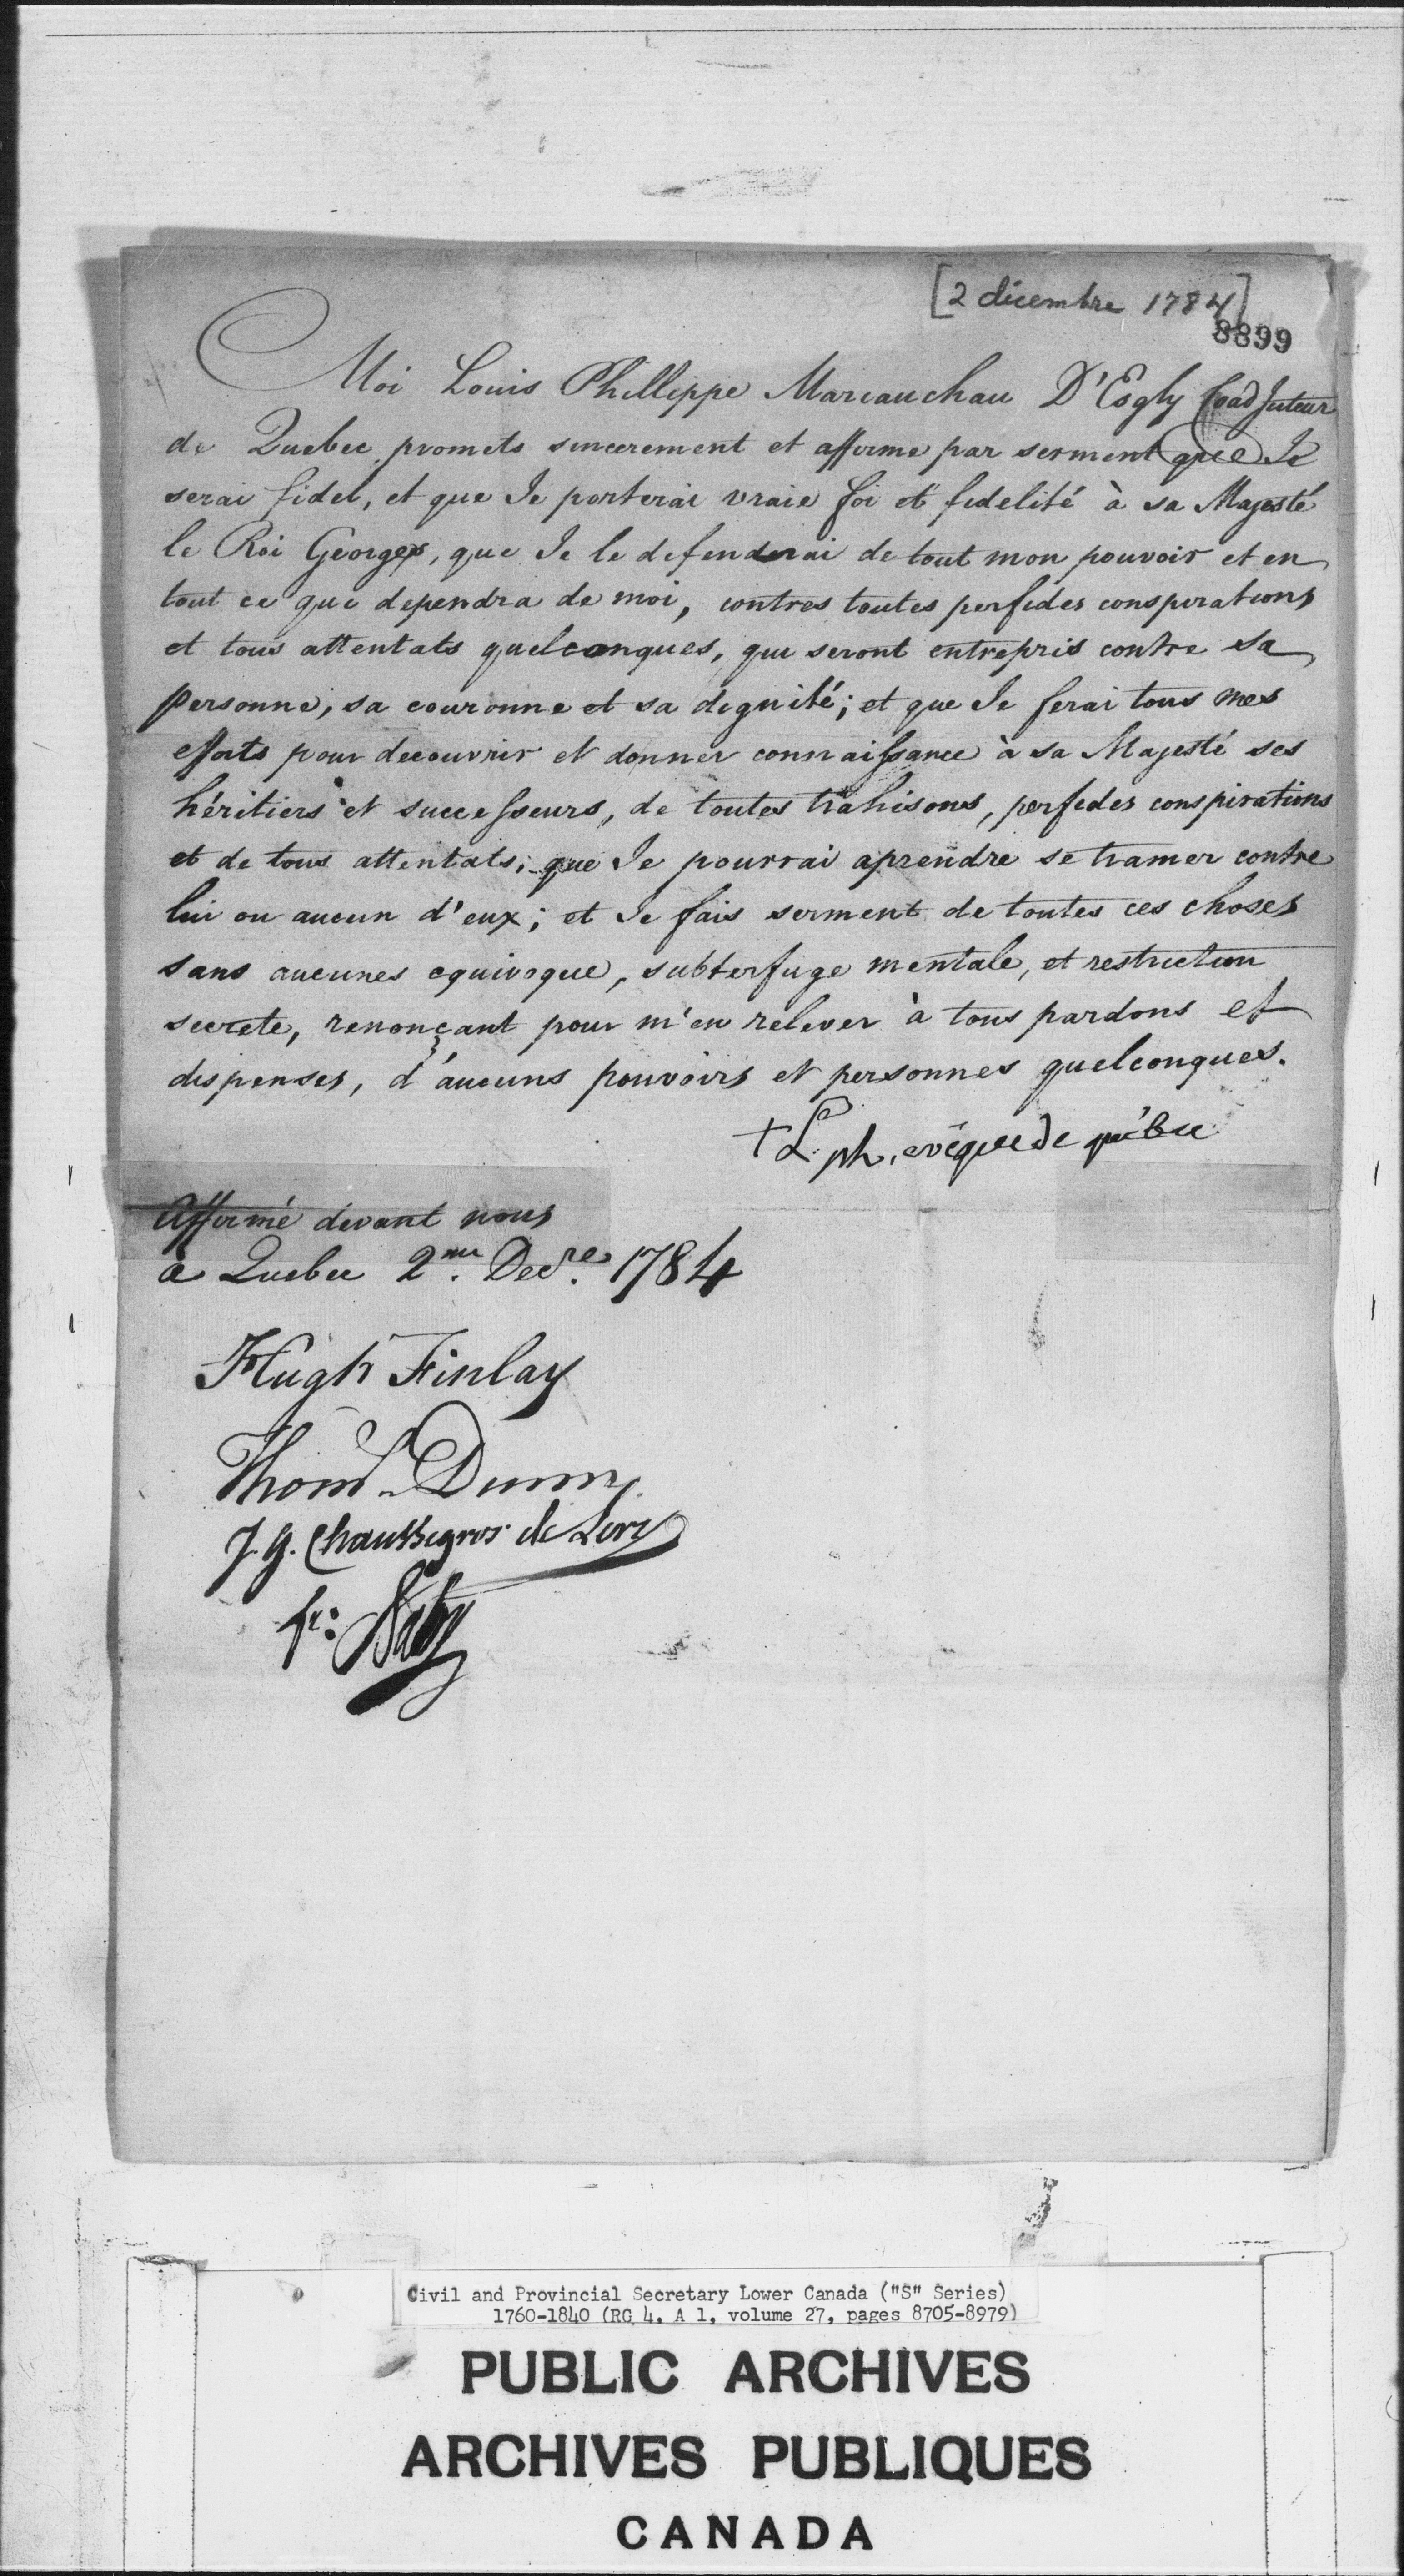 [2 décembre 1784]
8899
Moi Louis Phillippe Mariauchau D'Esgly Coadjuteur
de Quebec promets sincerement et affirme par serment que Je
serai fidel, et que Je porterai vraie foi et fidelité à sa Majesté
le Roi Georges, que Je le defenderai de tout mon pouvoir et en
tout ce qui dependra de moi, contres toutes perfides conspirations
et tous attentats quelconques, qui seront entrepris contre sa
personne, sa couronne et sa dignité; et que Je ferai tous mes
efforts pour decouvrir et donner connaissance à sa Majesté ses
héritiers et successeurs, de toutes trahisons, perfides conspirations
et de tous attentats, que Je pourrai aprendre se tramer contre
lui ou aucun d'eux; et Je fais serment de toutes ces choses
sans aucunes equivoque, subterfuge mentale, et restriction
secrete, renonçant pour m'en relever à tous pardons et
dispenses, d'aucuns pouvoirs et personnes quelconques.
+ L. ph. evêque de québec
Affirmé devant nous
à Quebec 2me. Decre. 1784
Hugh Finlay
Thoms Dunn
J. G. Chaussegros de Lery
fr: Baby
Civil and Provincial Secretary Lower Canada ("S" Series)
1760-1840 (RG 4, A 1, volume 27, pages 8705-8979)
PUBLIC ARCHIVES
ARCHIVES PUBLIQUES
CANADA